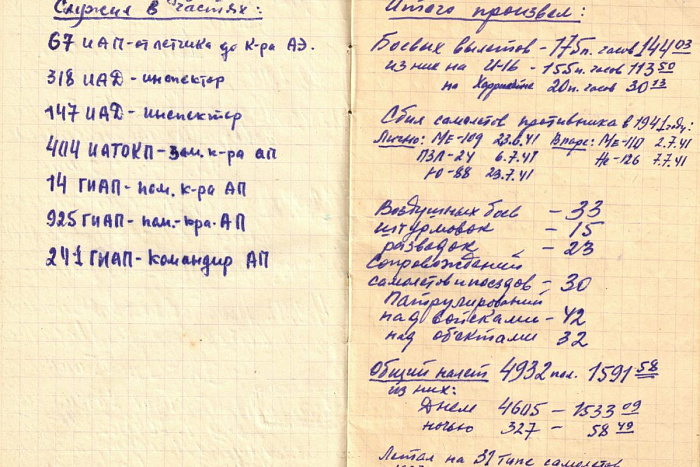 Служил в частях:
67 ИАП-от летчика до к-ра АЭ.
318 ИАД - инспектор
147 ИАД - инспектор
404 ИАТОКП - зам. к-ра ап
14 ГИАП - пом. к-ра АП
925 ГИАП - пом.-к-ра. АП
241 ГИАП - Командир АП
Итого произвел:
Боевых вылетов - 175п. часов 144 03
из них на И-16 - 155п. часов 113 50
на Харрикейне 20п. часов 30 13
Сбил самолетов противника в 1941 году:
Лично: МЕ-109 23.6.41 В паре: МЕ-110 2.7.41
ПЗЛ-24 6.7.41 Не-126 7.7.41
Ю-88 23.7.41
Воздушных боев - 33
штурмовок - 15
разведок - 23
Сопровождений
самолетов и поездов - 30
Патрулирований
над войсками - 42
над объектами 32
Общий налет 4932 пол. 1591 58
из них:
Днем 4605 - 1533 09
ночью 327 - 58 49
Летал на 31 типе самолетов